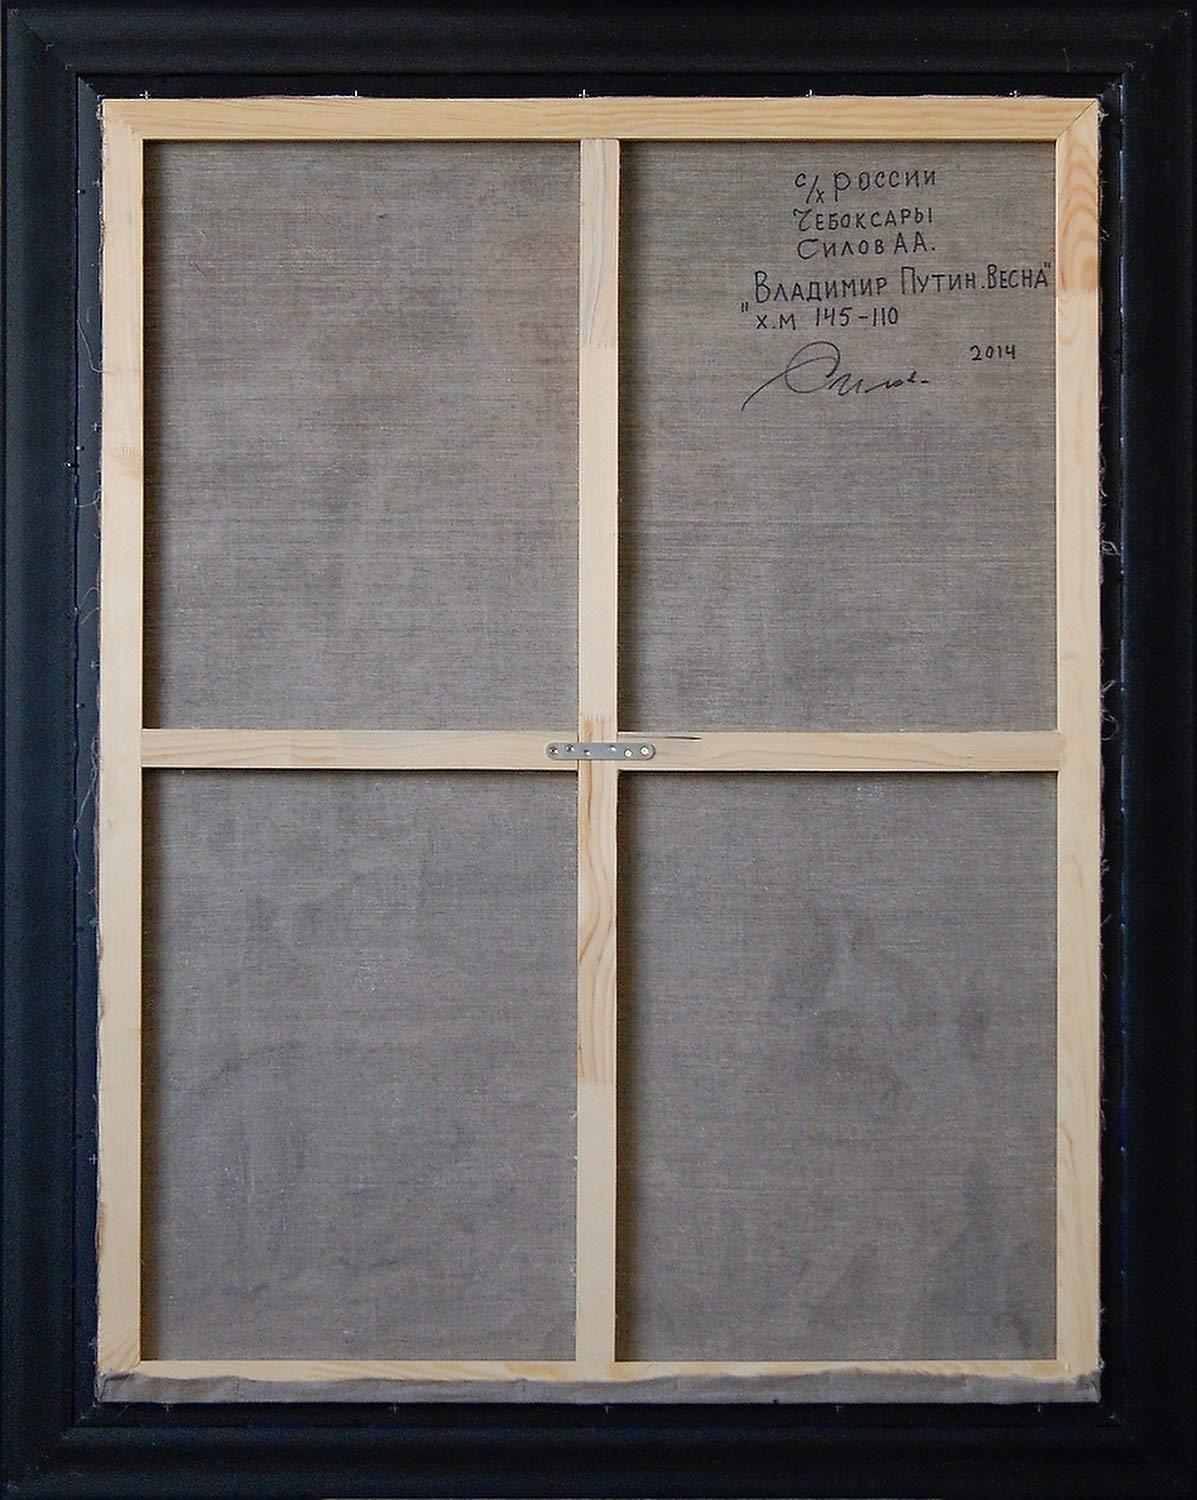 с/х РОССИИ
ЧЕБОКСАРЫ
СИЛОВ А А.
"ВЛАДИМИР ПУТИН. ВЕСНА"
" Х.М 145-110
2014
Силов